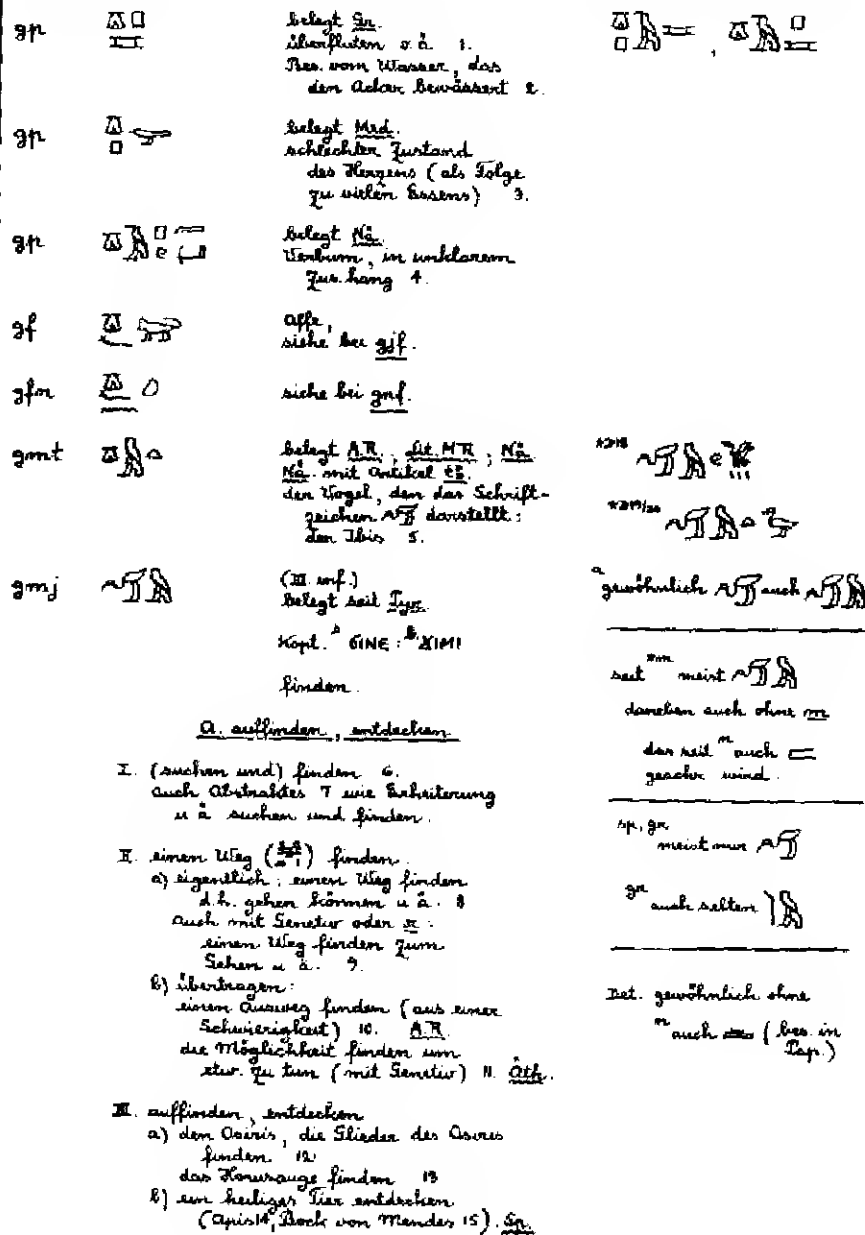 gp
belegt Gr.
überfluten o. ä. 1.
Bes. vom Wasser, das
den Acker bewässert 2.
gp
belegt Med.
schlechter Zustand
des Herzens (als Folge
zu vielen Essens) 3.
gp
belegt Nä.
Verbum, in unklarem
Zus. hang 4.
gf
Affe,
siehe bei gjf.
gfn
siehe bei gnf.
gmt
belegt A.R.; Lit. M.R.; Nä.
Nä. mit Artikel
den Vogel, den das Schrift-
zeichen darstellt:
den Ibis 5.
gmj
(III. inf.)
belegt seit Pyr.
Kopt. S ϬΙΝΕ : B ϪΙΜΙ
finden.
A. auffinden, entdecken
I. (suchen und) finden 6.
auch Abstraktes 7 wie Erheiterung
u. ä. suchen und finden.
II. einen Weg ( ) finden.
a) eigentlich: einen Weg finden
d.h. gehen können u. ä. 8
auch mit Genetiv oder r:
einen Weg finden zum
Gehen u. ä. 9.
b) übertragen:
einen Ausweg finden (aus einer
Schwierigkeit) 10. A.R.
die Möglichkeit finden um
etw. zu tun (mit Genetiv) 11. Äth.
III. auffinden, entdecken
a) den Osiris, die Glieder des Osiris
finden 12
das Horusauge finden 13
b) ein heiliges Tier entdecken
(Apis 14, Bock von Mendes 15). Sp.
*D18
*D19/20
a gewöhnlich auch
seit meist
daneben auch ohne m
das seit n auch
geschr. wird.
sp, gr
meist nur
gr auch selten
Det. gewöhnlich ohne
n auch (bes. in
Pap.)